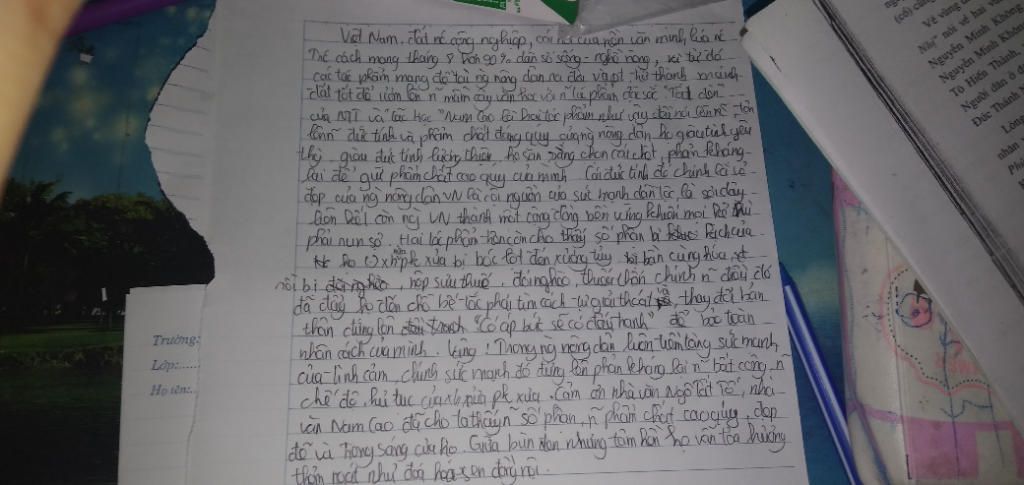 Việt Nam, đất nc nông nghiệp, cái nôi của nền văn minh lúa nc
Trc cách mạng tháng 8 hơn 90% dân số sống - nghề nông, và từ đó
các tác phẩm mang đề tài ng nông dân ra đời và pt trở thành mảnh
đất tốt để ươm lên n~ mầm cây văn học và n~ tác phẩm đặc sắc "Tắt đèn"
của NTT và "Lão Hạc" Nam Cao là hai tác phẩm như vậy đã nói lên n~
đức tính và phẩm chất đáng quý của ng nông dân họ giàu tình yêu
thg, giàu đức tính lương thiện, họ sẵn sàng chọn cái chết, phản kháng
lại để giữ phẩm chất cao quý của mình. Cái đức tính đó chính là vẻ
đẹp của ng nông dân VN là cội nguồn của sức mạnh dân tộc là sợi dây
gắn kết con ng VN thành một cộng đồng bền vững khiến mọi kẻ thù
phải run sợ. Hai tác phẩm còn cho thấy số phận bi kịch của
họ (-) xh pk xưa bị bóc lột đến xương tủy bị bần cùng hóa
nỗi bị nộp sưu thuế, đói nghèo, thuốc chính n~ điều đó
đã đẩy họ đến chỗ bế tắc phải tìm cách tự giải thoát, thay đổi bản
thân đứng lên "Có áp bức sẽ có đấu tranh" để bảo toàn
nhân cách của mình. Vâng! Trong ng nông dân luôn tiềm tàng sức mạnh
của tình cảm, chính sức mạnh đó đứng lên phản kháng lại n~ bất công, n~
chế độ, hủ tục của xh pk xưa. Cảm ơn nhà văn Ngô Tất Tố, nhà
văn Nam Cao đã cho ta thấy n~ số phận, n~ phẩm chất cao quý, đẹp
đẽ và trong sáng của họ. Giữa bùn đen nhưng tâm hồn họ vẫn tỏa hương
thơm ngát như đóa hoa sen đồng nội.
Trường:
Lớp:.....
Họ tên:..
Nguyễn Minh Không
Tô Hiến Thành,
Người dân ở
Đức Thánh